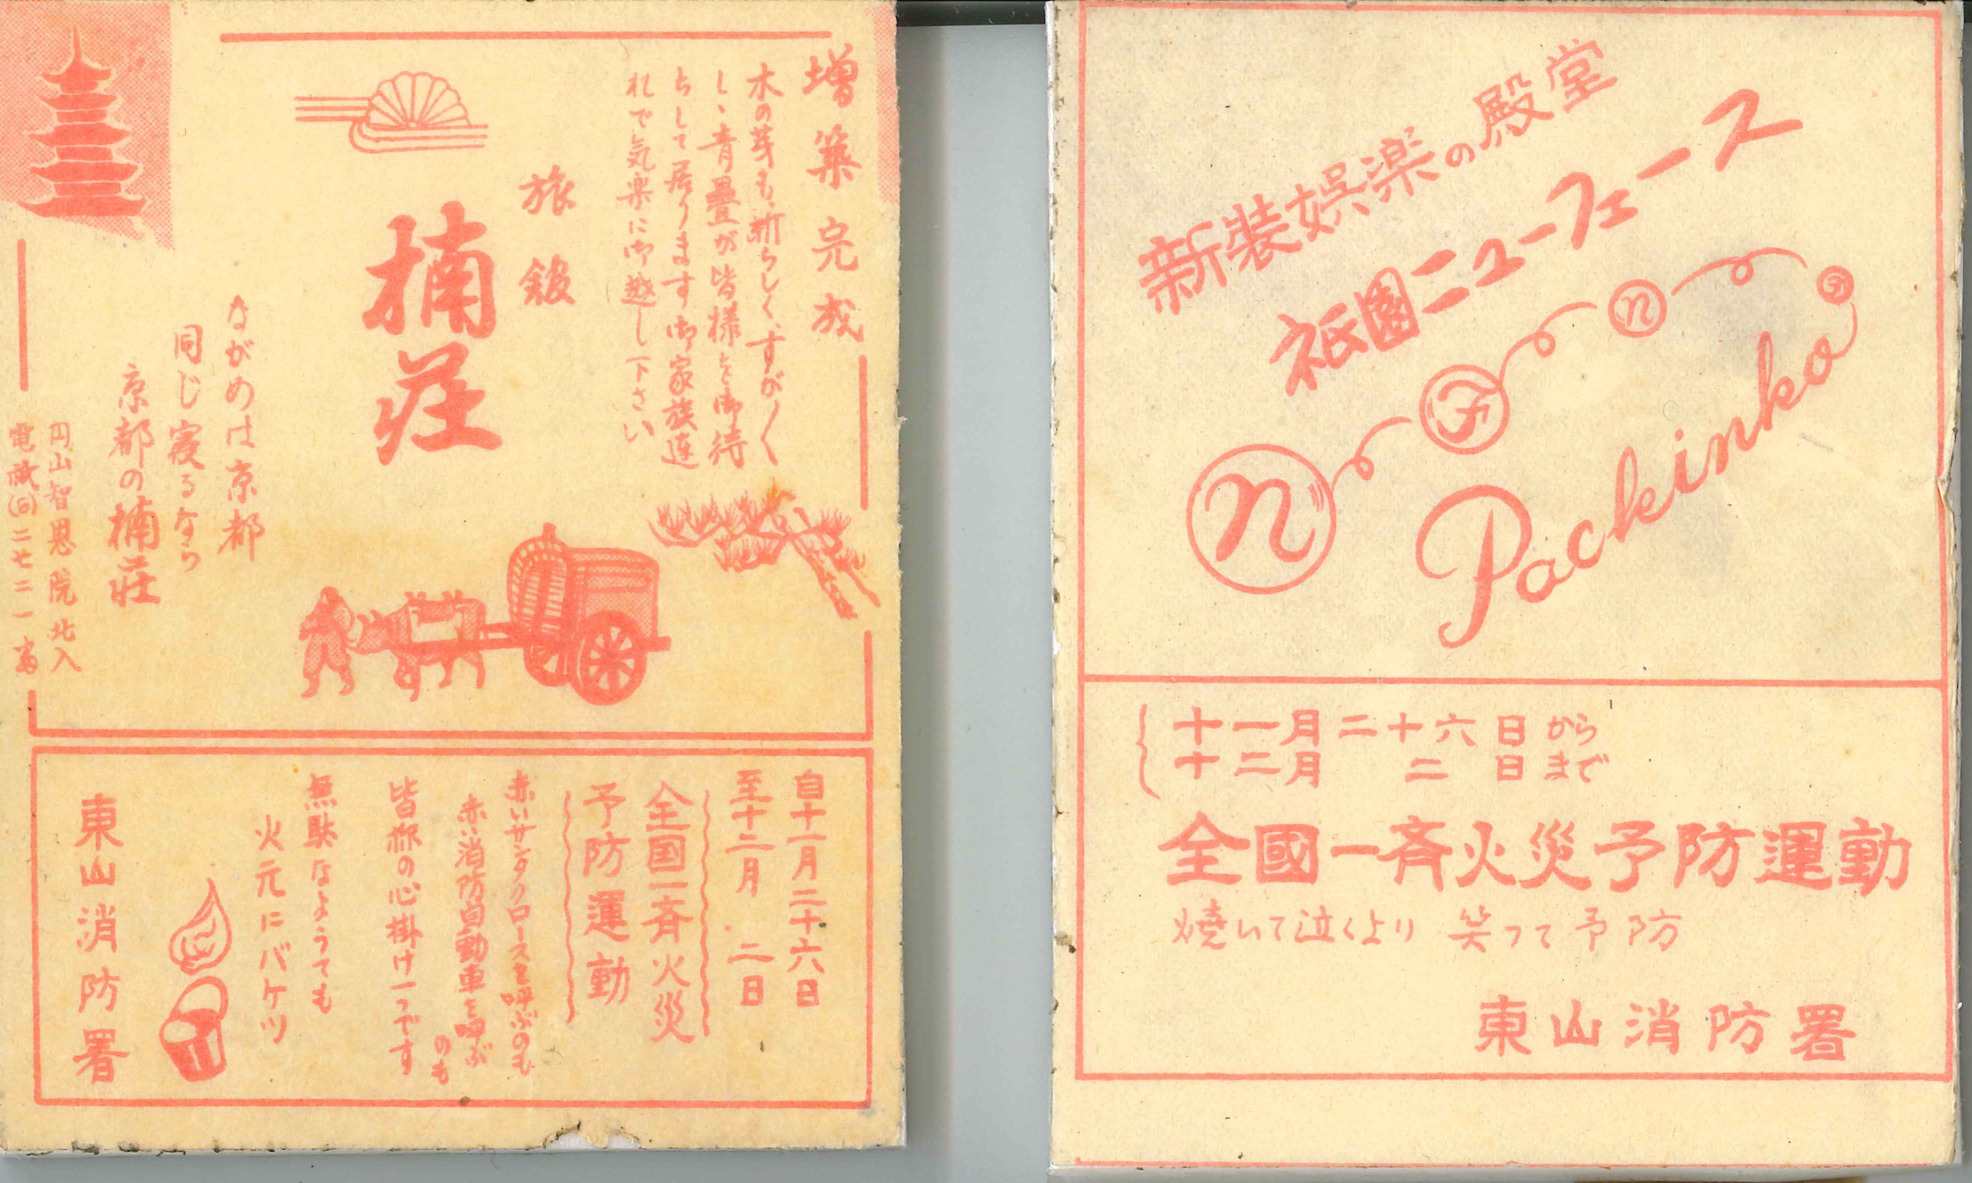 増築完成
木の芽も新らしくすが〱
しい青畳が皆様を御待
ちして居ります御家族連
れで気楽に御越し下さい
旅館
楠荘
ながめは京都
同じ寝るなら
京都の楠荘
円山智恩院北入
電祇⑹二七二一番
自十一月二十六日
至十二月 二日
全国一斉火災
予防運動
赤いサンタクロースを呼ぶのも
赤い消防自動車を呼ぶ
のも
皆様の心掛け一つです
無駄なようでも
火元にバケツ
東山消防署
新装娯楽の殿堂
祇園ニューフェース
n F n F
Packinko
十一月二十六日から
十二月 二 日まで
全國一斉火災予防運動
焼いて泣くより 笑って予防
東山消防署